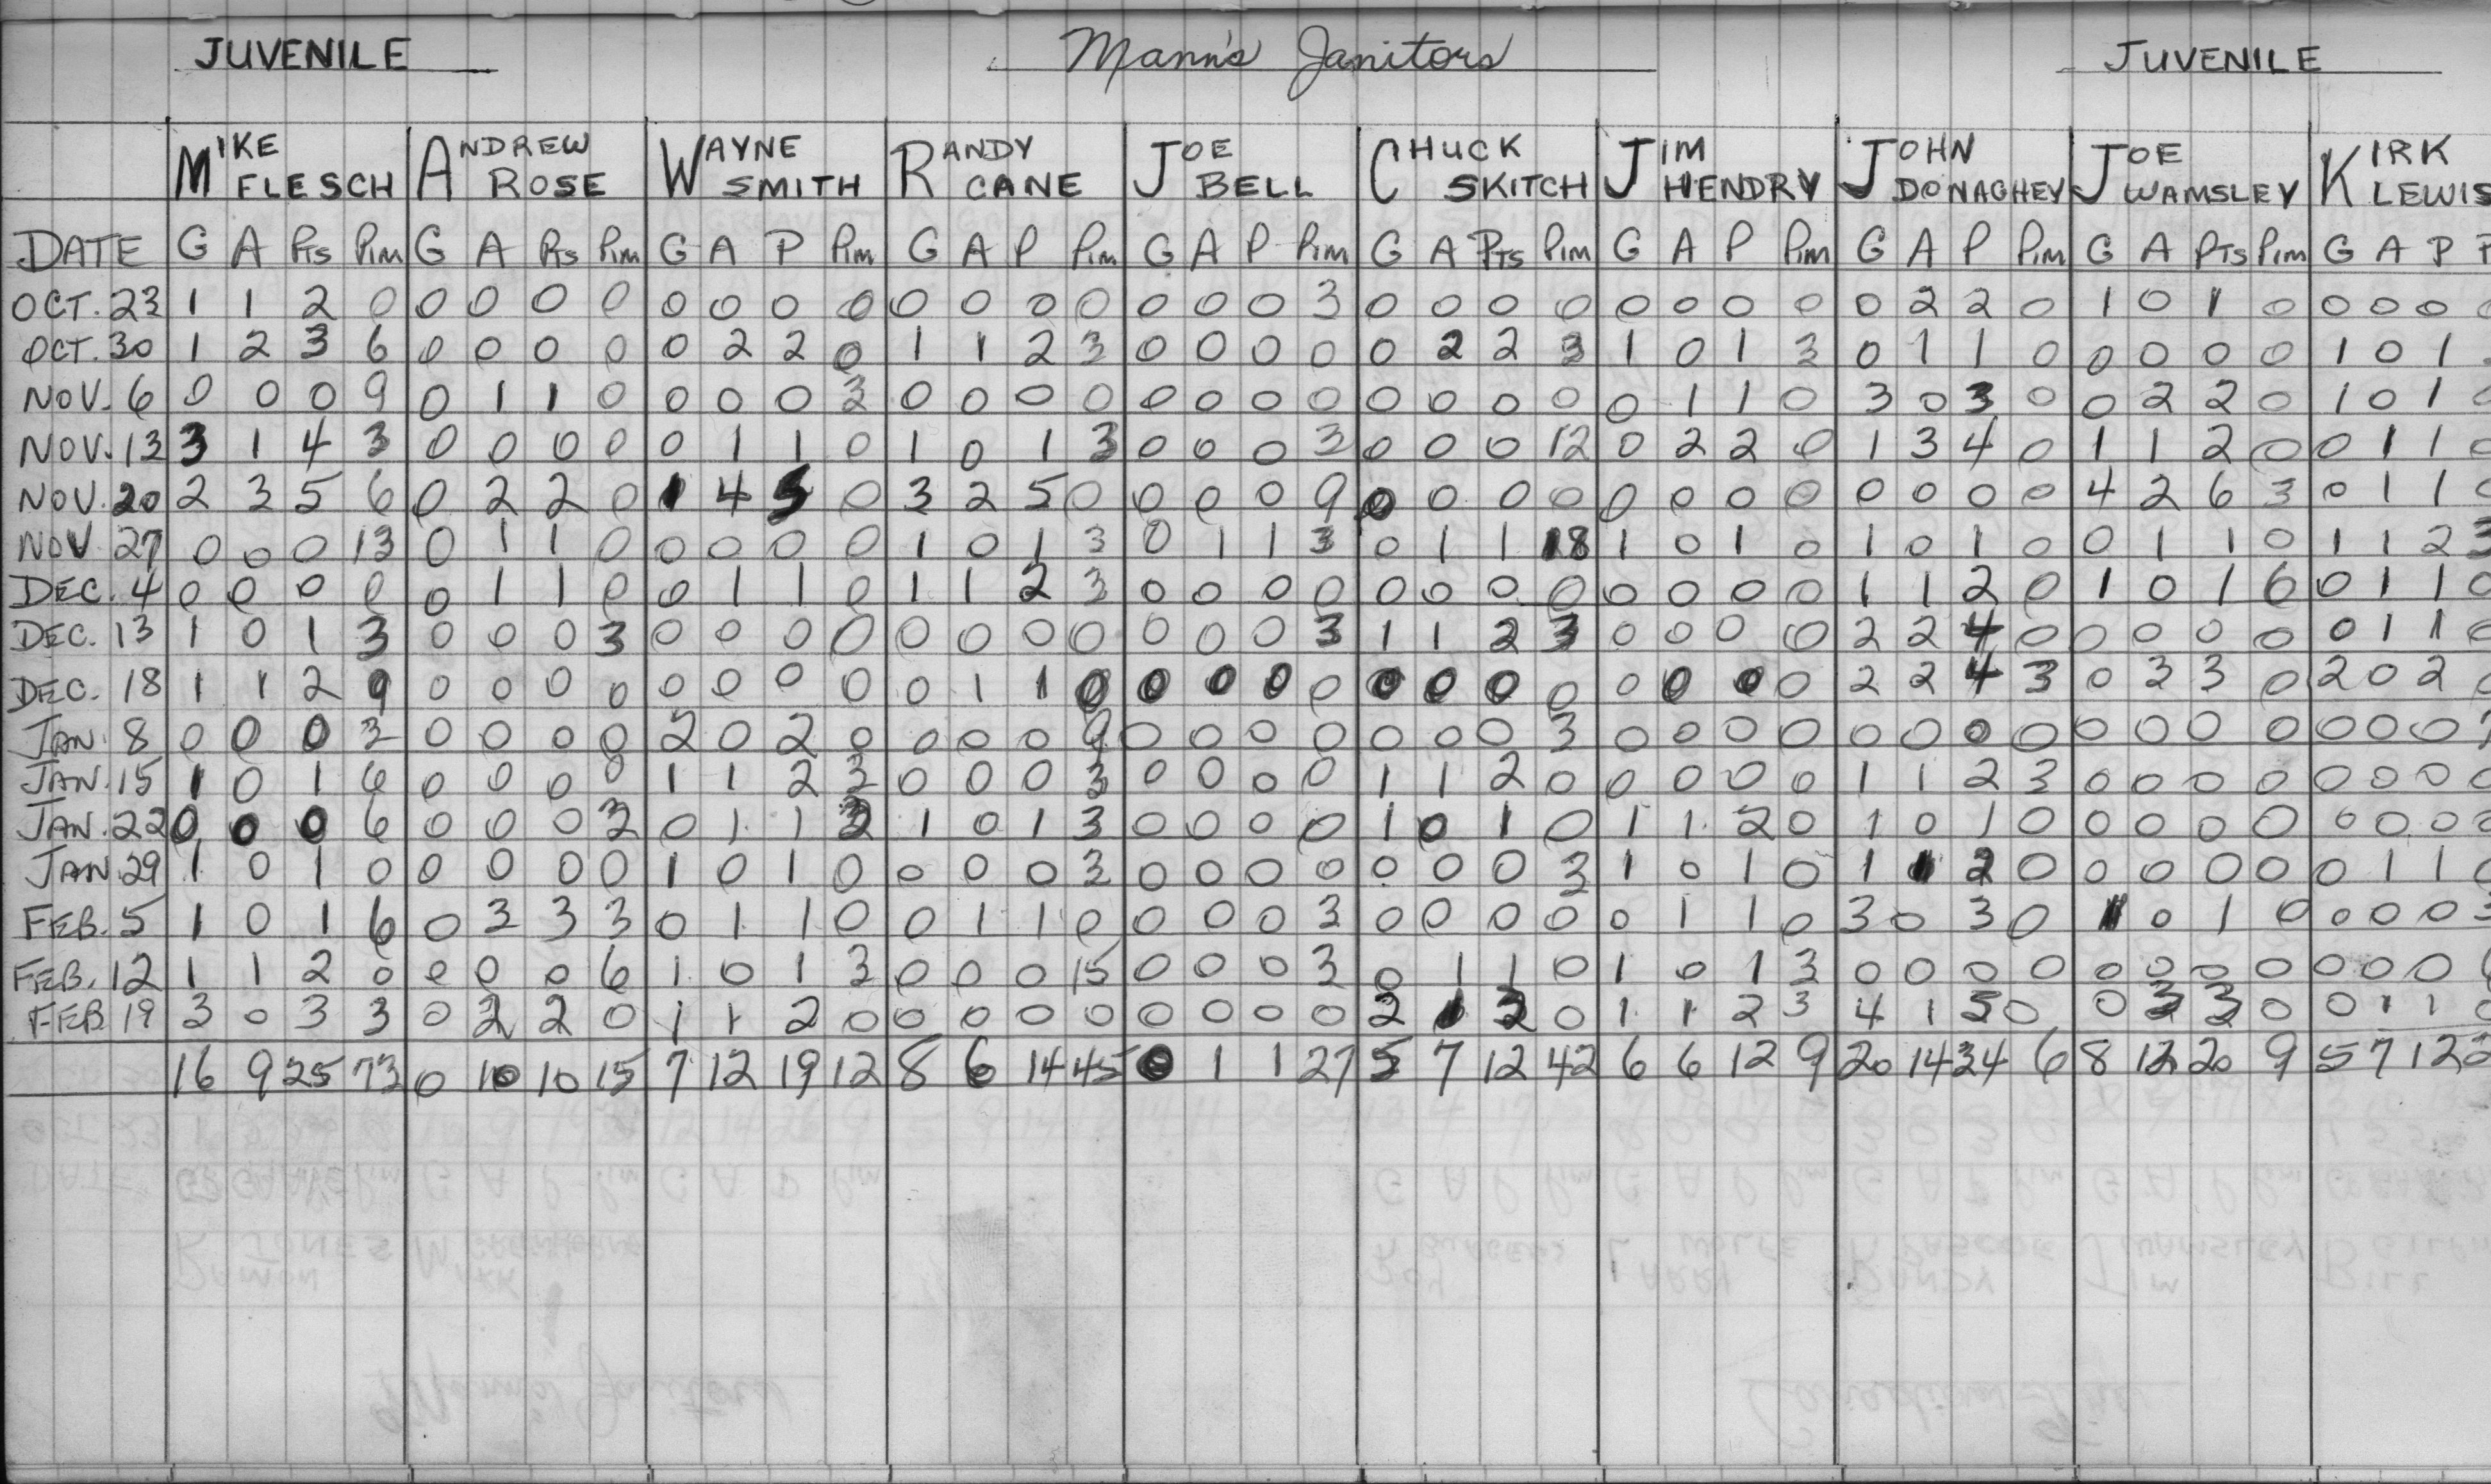 JUVENILE Mann's Janitors JUVENILE
MIKE ANDREW WAYNE RANDY JOE CHUCK JIM JOHN JOE KIRK
FLESCH ROSE SMITH CANE BELL SKITCH HENDRY DONAGHEY WAMSLEY LEWIS
DATE G A Pts Pim G A Pts Pim G A P Pim G A P Pim G A P Pim G A PTs Pim G A P Pim G A P Pim G A PTs Pim G A P
OCT. 23 1 1 2 0 0 0 0 0 0 0 0 0 0 0 0 0 0 0 0 3 0 0 0 0 0 0 0 0 0 2 2 0 1 0 1 0 0 0 0
OCT. 30 1 2 3 6 0 0 0 0 0 2 2 0 1 1 2 3 0 0 0 0 0 2 2 3 1 0 1 3 0 1 1 0 0 0 0 0 1 0 1
NOV. 6 0 0 0 9 0 1 1 0 0 0 0 3 0 0 0 0 0 0 0 0 0 0 0 0 0 1 1 0 3 0 3 0 0 2 2 0 1 0 1
NOV. 13 3 1 4 3 0 0 0 0 0 1 1 0 1 0 1 3 0 0 0 3 0 0 0 12 0 2 2 0 1 3 4 0 1 1 2 0 0 1 1
NOV. 20 2 3 5 6 0 2 2 0 1 4 5 0 3 2 5 0 0 0 0 9 0 0 0 0 0 0 0 0 0 0 0 0 4 2 6 3 0 1 1
NOV. 27 0 0 0 13 0 1 1 0 0 0 0 0 1 0 1 3 0 1 1 3 0 1 1 18 1 0 1 0 1 0 1 0 0 1 1 0 1 1 2 3
DEC. 4 0 0 0 0 0 1 1 0 0 1 1 0 1 1 2 3 0 0 0 0 0 0 0 0 0 0 0 0 1 1 2 0 1 0 1 0 0 1 1 0
DEC. 13 1 0 1 3 0 0 0 3 0 0 0 0 0 0 0 0 0 0 0 3 1 1 2 3 0 0 0 0 2 2 4 0 0 0 0 0 0 1 1
DEC. 18 1 1 2 9 0 0 0 0 0 0 0 0 0 1 1 0 0 0 0 0 0 0 0 0 0 0 0 0 2 2 4 3 0 3 3 0 2 0 2
JAN. 8 0 0 0 3 0 0 0 0 2 0 2 0 0 0 0 9 0 0 0 0 0 0 0 3 0 0 0 0 0 0 0 0 0 0 0 0 0 0 0
JAN. 15 1 0 1 6 0 0 0 0 1 1 2 3 0 0 0 3 0 0 0 0 1 1 2 0 0 0 0 0 1 1 2 3 0 0 0 0 0 0 0
JAN. 22 0 0 0 6 0 0 0 3 0 1 1 3 1 0 1 3 0 0 0 0 1 0 1 0 1 1 2 0 1 0 1 0 0 0 0 0 0 0 0
JAN. 29 1 0 1 0 0 0 0 0 1 0 1 0 0 0 0 3 0 0 0 0 0 0 0 3 1 0 1 0 1 1 2 0 0 0 0 0 0 1 1
FEB. 5 1 0 1 6 0 3 3 3 0 1 1 0 0 1 1 0 0 0 0 3 0 0 0 0 0 1 1 0 3 0 3 0 1 0 1 0 0 0 0
FEB. 12 1 1 2 0 0 0 0 6 1 0 1 3 0 0 0 15 0 0 0 3 0 1 1 0 1 0 1 3 0 0 0 0 0 0 0 0 0 0 0
FEB 19 3 0 3 3 0 2 2 0 1 1 2 0 0 0 0 0 0 0 0 0 2 1 3 0 1 1 2 3 4 1 5 0 0 3 3 0 0 1 1
16 9 25 73 0 10 10 15 7 12 19 12 8 6 14 45 0 1 1 27 5 7 12 42 6 6 12 9 20 14 34 6 8 12 20 9 5 7 12